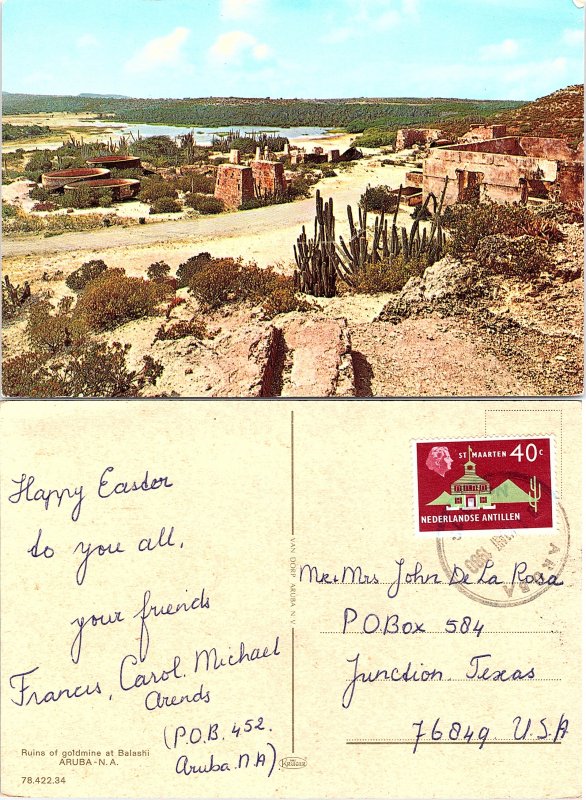 Happy Easter
to you all,
your friends
Francis, Carol. Michael
Arends
(P.O.B. 452.
Aruba. NA)
Ruins of goldmine at Balashi
ARUBA - N. A.
78.422.34
VAN DORP ARUBA N.V.
ST MAARTEN 40c
NEDERLANDSE ANTILLEN
1980
ARUBA
Mr + Mrs John De La Rosa
P.O.Box 584
Junction, Texas
76849 U.S.A